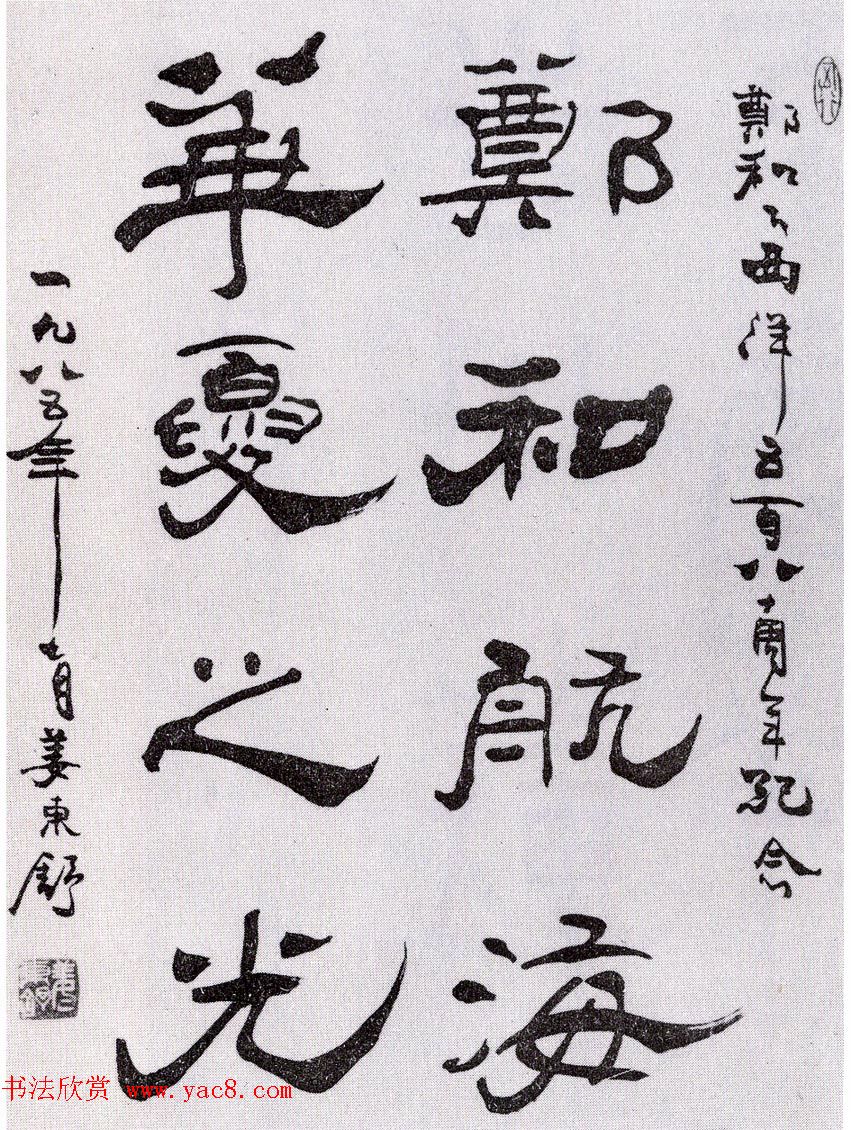 鄭和下西洋五百八十周年紀念
鄭和航海
華夏之光
一九八五年七月姜東舒
书法欣赏 www.yac8.com